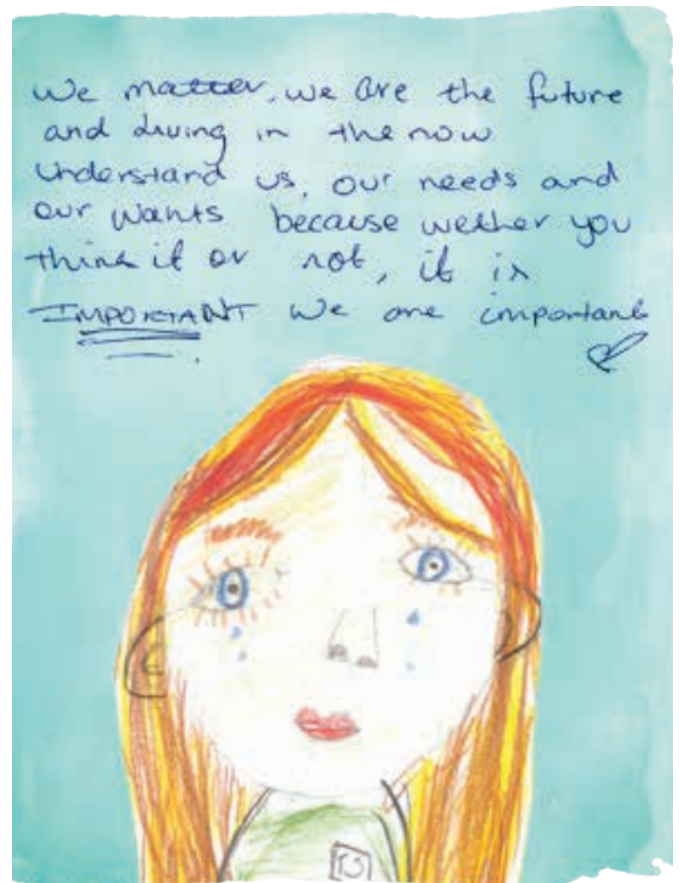 We matter, we are the future
and living in the now
understand us, our needs and
our wants because wether you
think it or not, it is
IMPORTANT we are important